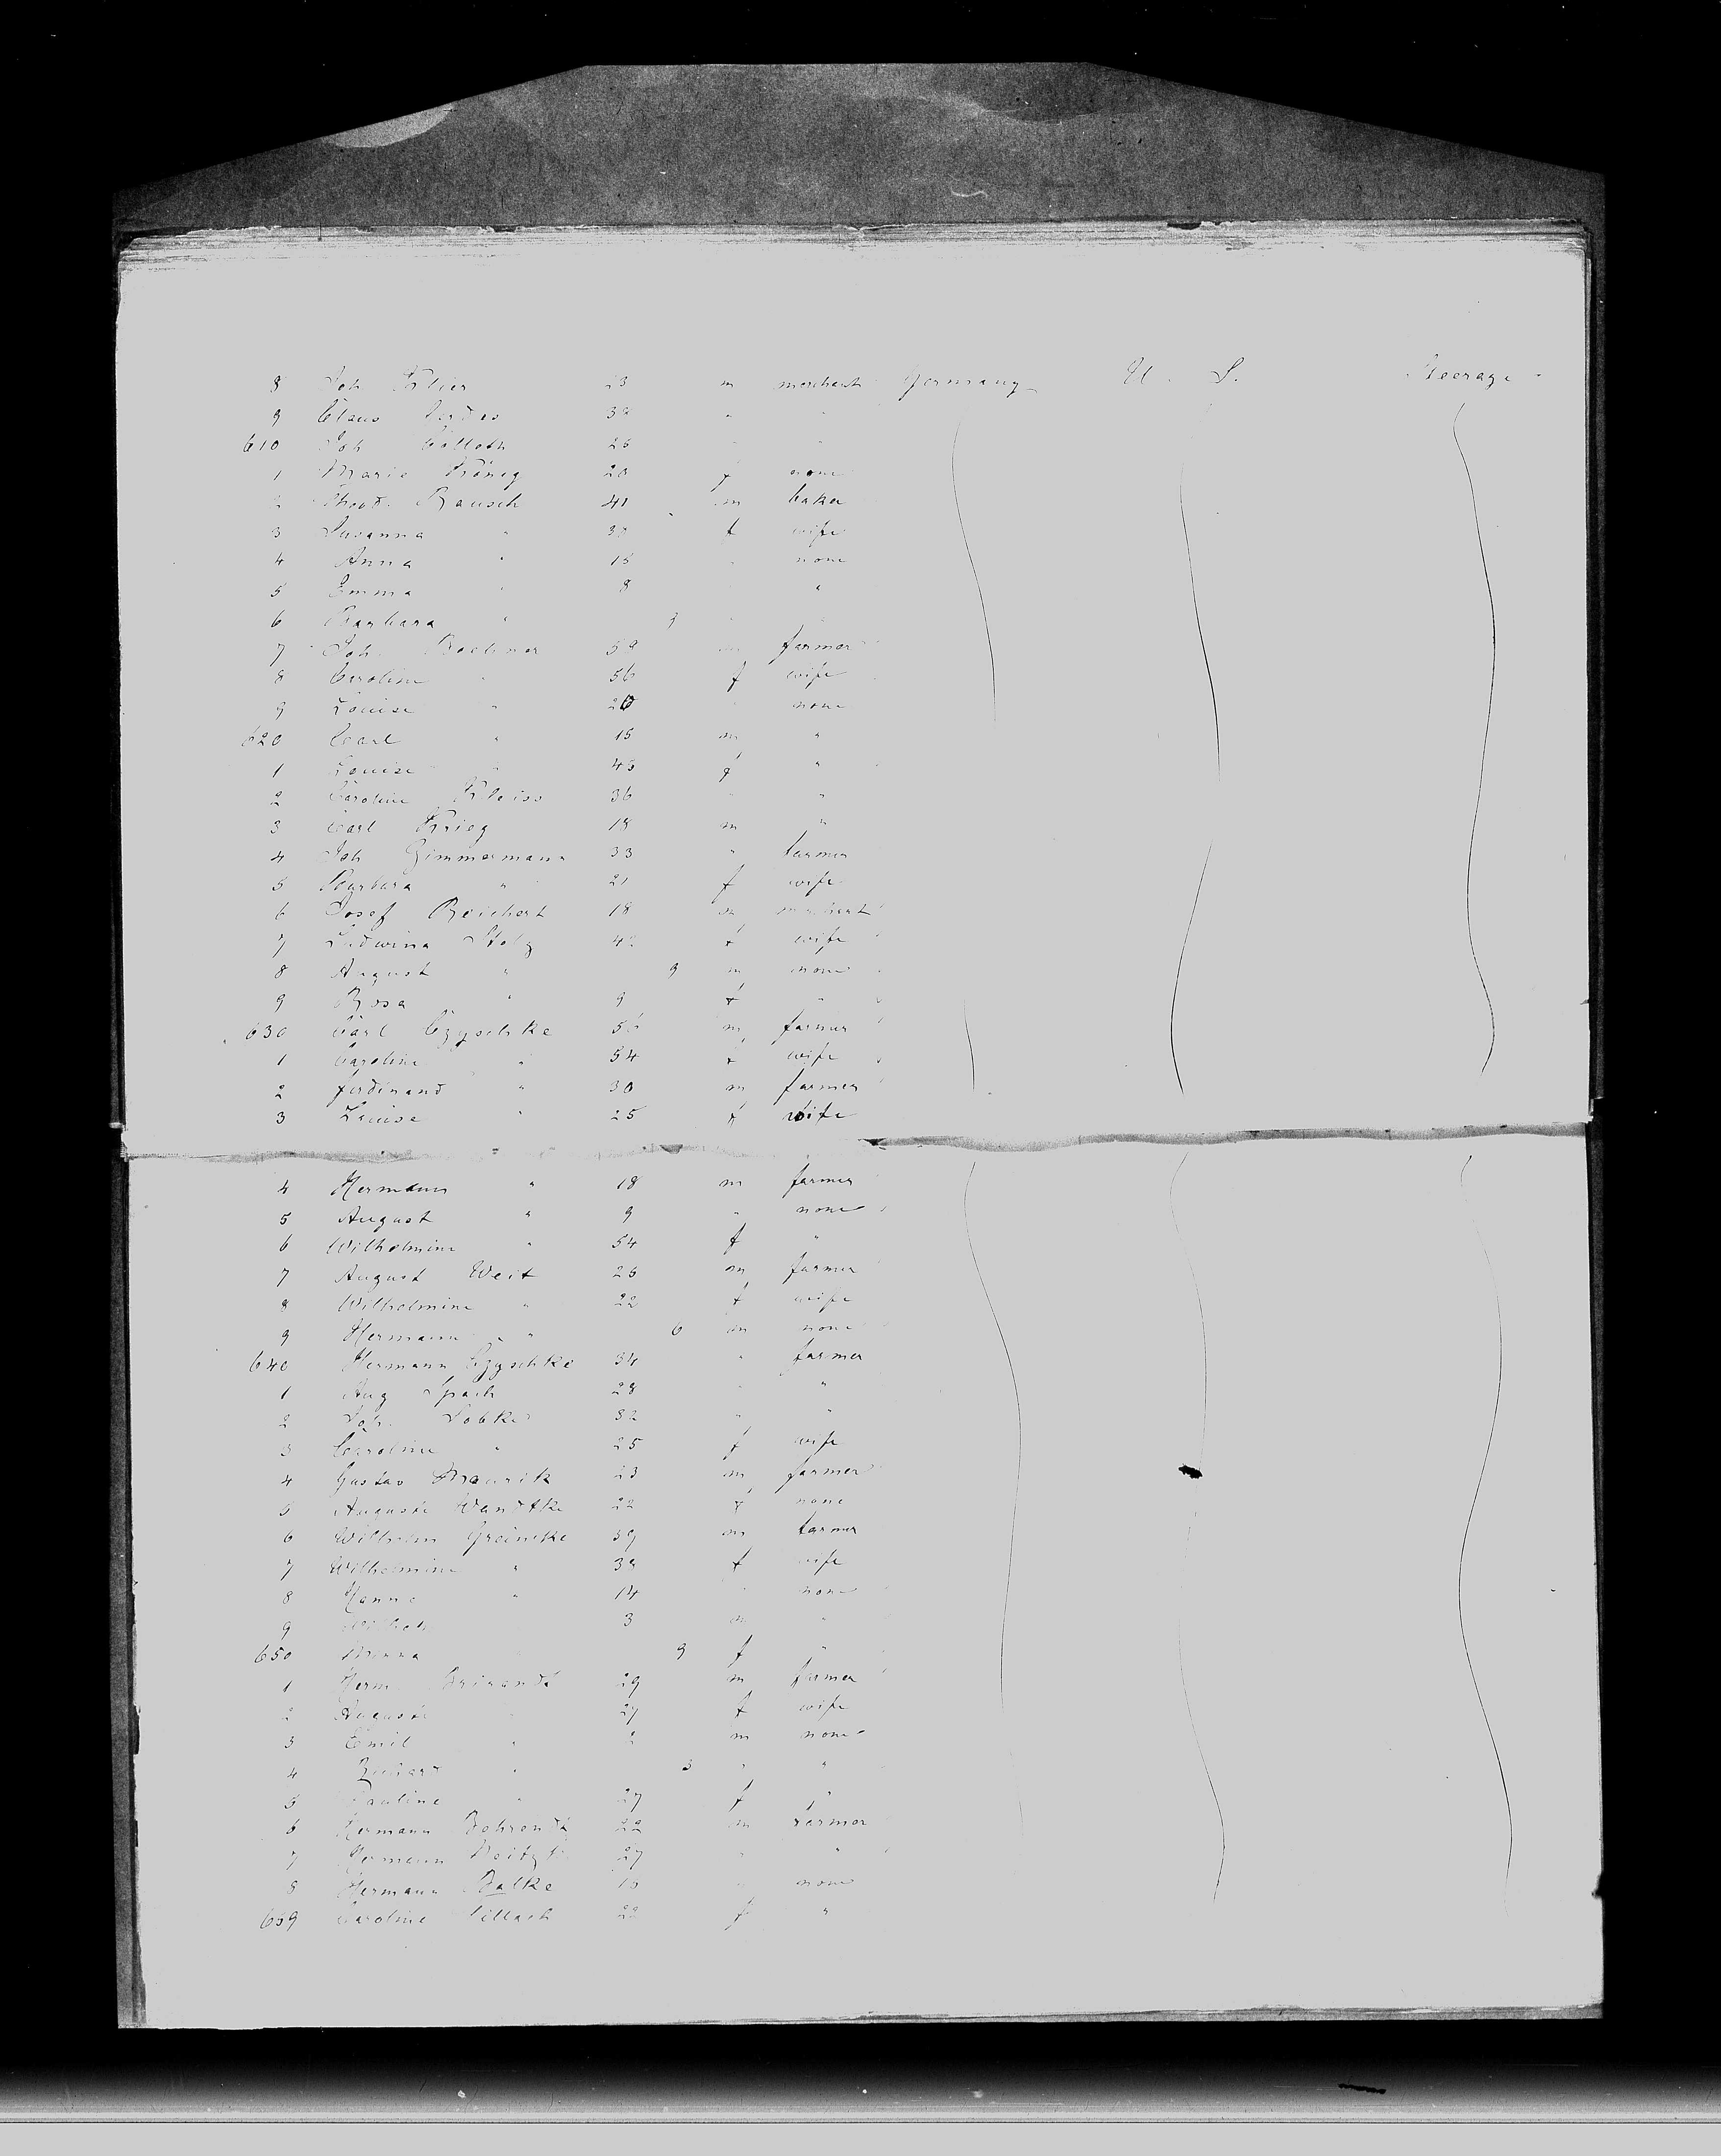 8 Joh 23 m merchant Germany U. S. Steerage
9 Claus 38 " "
610 Joh 26 " "
1 Marie König 20 f none
2 Theod. Rausch 41 m baker
3 Susanna " 38 f wife
4 Anna " 15 " none
5 Emma " 8 " "
6 Barbara " 9 " "
7 Joh. Buchner 59 m farmer
8 Caroline " 56 f wife
9 Louise " 20 " none
620 Carl " 15 m "
1 Louise " 45 f "
2 Caroline Kleiss 36 " "
3 Carl Krieg 18 m "
4 Joh Zimmermann 33 " farmer
5 Barbara " 21 f wife
6 Josef Reichert 18 m merchant
7 Ludwina Stolz 42 f wife
8 August " 9 m none
9 Rosa " 9 f "
630 Carl Czyschke 56 m farmer
1 Caroline " 54 f wife
2 Ferdinand " 30 m farmer
3 Louise " 25 f wife
4 Hermann " 18 m farmer
5 August " 9 " none
6 Wilhelmine " 54 f "
7 August Weit 26 m farmer
8 Wilhelmine " 22 f wife
9 Hermann " 6 m none
640 Hermann Czyschke 34 " farmer
1 Aug Spach 28 " "
2 Joh. Sobke 32 " "
3 Caroline " 25 f wife
4 Gustav 23 m farmer
5 Auguste Wandtke 22 f none
6 Wilhelm Greinke 39 m farmer
7 Wilhelmine " 38 f wife
8 Hanne " 14 " none
9 Wilhelm 3 m "
650 Minna 9 f "
1 Herm. 29 m farmer
2 Auguste 27 f wife
3 Emil " 2 m none
4 Richard " 3 " "
5 Pauline " 27 f "
6 Hermann Behrendt 22 m farmer
7 Hermann 27 " "
8 Hermann Balke 16 " none
659 Caroline 22 f "